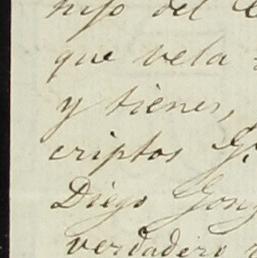 hijo del
que vela
y tienes,
criptos G
Diego Gonz
verdadero